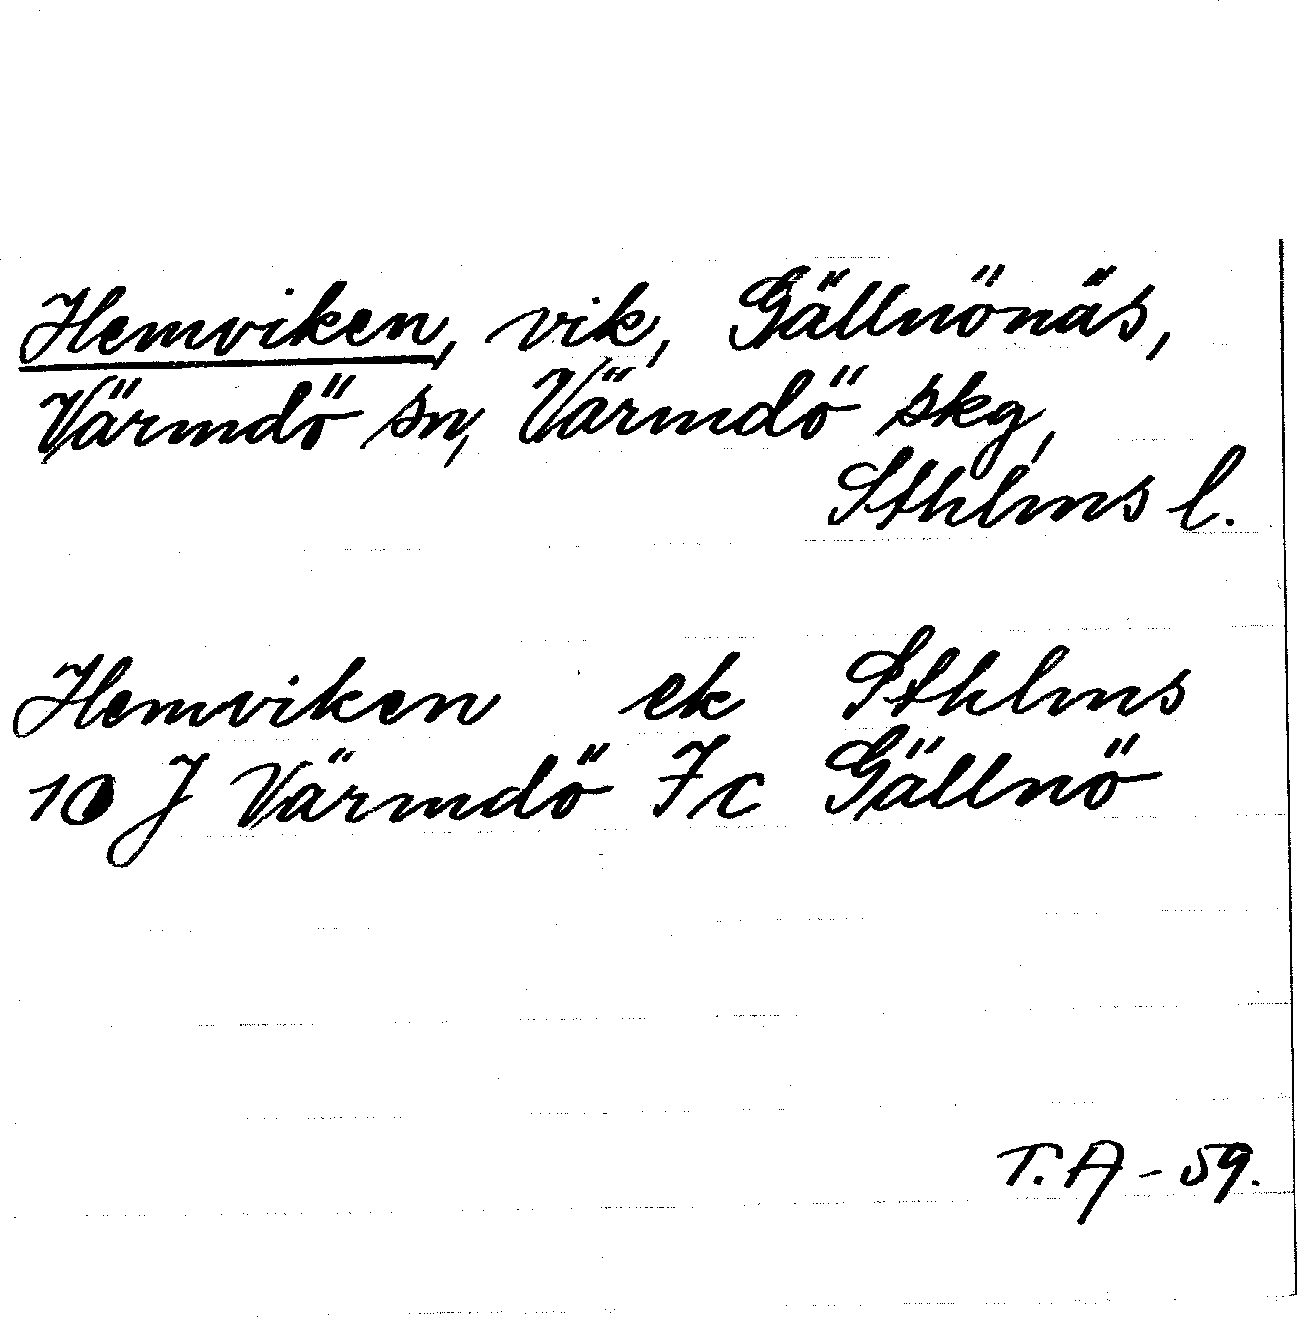 Hemviken, vik, Gällnönäs,
Värmdö sn, Värmdö skg,
Sthlms l.
Hemviken ek Sthlms
10 J Värmdö 7c Gällnö
T.A - 59.